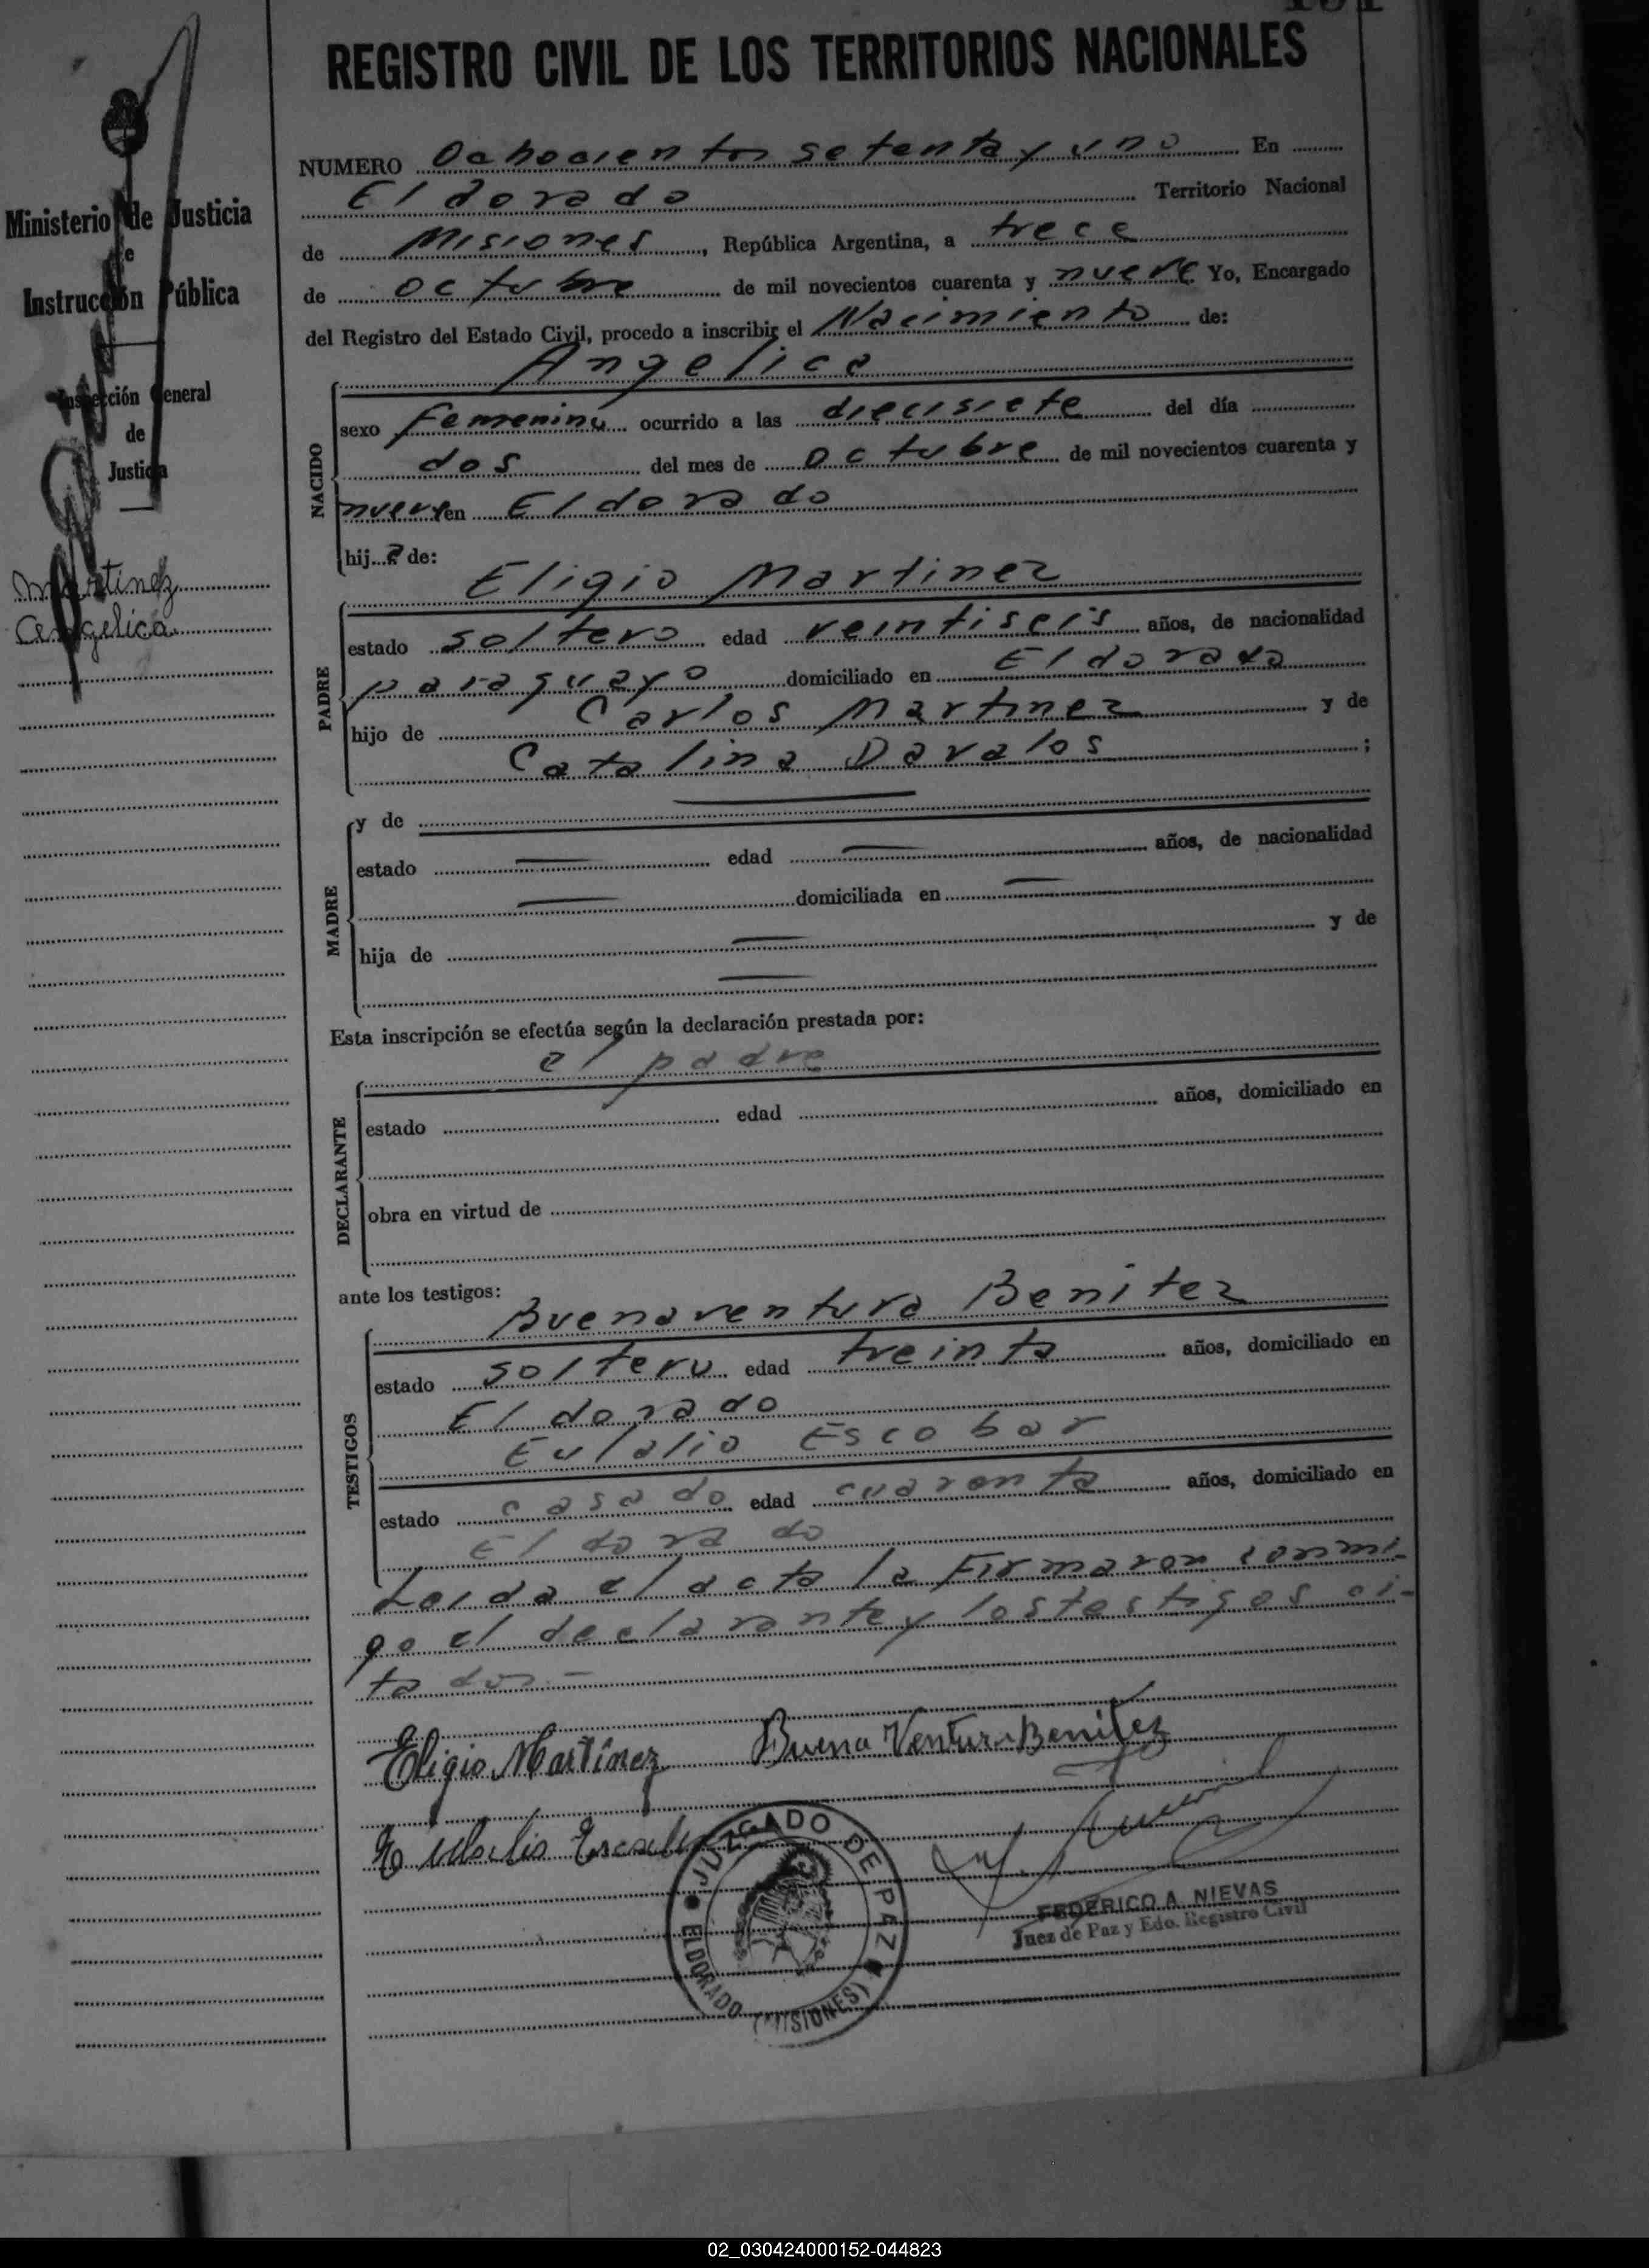 REGISTRO CIVIL DE LOS TERRITORIOS NACIONALES
Ministerio de Justicia
e
Instrucción Pública
Inspección General
de
Justicia
Martinez
Angelica
NUMERO Ochocientos setenta y uno En
El dorado Territorio Nacional
de Misiones, República Argentina, a trece
de octubre de mil novecientos cuarenta y nueve Yo, Encargado
del Registro del Estado Civil, procedo a inscribir el Nacimiento de:
Angelica
NACIDO
sexo femenino ocurrido a las diecisiete del día
dos del mes de octubre de mil novecientos cuarenta y
nueve en El dorado
hij a de:
Eligio Martinez
PADRE
estado soltero edad veintiseis años, de nacionalidad
paraguayo domiciliado en El dorado
hijo de Carlos Martinez y de
Catalina Davalos ;
MADRE
y de
estado edad años, de nacionalidad
domiciliada en
hija de y de
Esta inscripción se efectúa según la declaración prestada por:
el padre
DECLARANTE
estado edad años, domiciliado en
obra en virtud de
ante los testigos:
Buenaventura Benitez
TESTIGOS
estado soltero edad treinta años, domiciliado en
El dorado
Eulalio Escobar
estado casado edad cuarenta años, domiciliado en
El dorado
Leida el acta la Firmaron conmi-
go el declarante y los testigos ci-
tados.-
Eligio Martínez Buena Ventura Benitez
Eulalio Escobar
JUZGADO DE PAZ
ELDORADO (MISIONES)
FEDERICO A. NIEVAS
Juez de Paz y Edo. Registro Civil
02_030424000152-044823